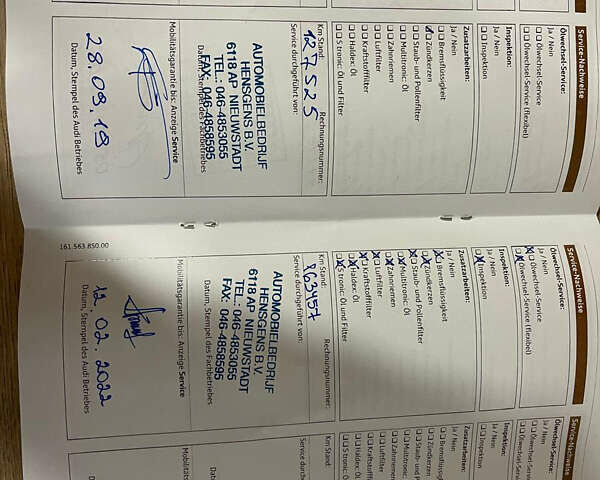 Service-Nachweise
Ölwechsel-Service:
Ja / Nein
Ölwechsel-Service
Ölwechsel-Service (flexibel)
Inspektion:
Ja / Nein
Inspektion
Zusatzarbeiten:
Ja / Nein
Bremsflüssigkeit
Zündkerzen
Staub- und Pollenfilter
Multitronic: Öl
Zahnriemen
Luftfilter
Kraftstofffilter
Haldex: Öl
S tronic: Öl und Filter
Km Stand: Rechnungsnummer:
127525
Service durchgeführt von:
AUTOMOBIELBEDRIJF
HENSGENS B.V.
6118 AP NIEUWSTADT
TEL.: 046-4853055
FAX: 046-4858595
Datum, Stempel des Fachbetriebes
Mobilitätsgarantie bis: Anzeige Service
28.09.18
Datum, Stempel des Audi Betriebes
161.563.850.00
Service-Nachweise
Ölwechsel-Service:
Ja / Nein
Ölwechsel-Service
Ölwechsel-Service (flexibel)
Inspektion:
Ja / Nein
Inspektion
Zusatzarbeiten:
Ja / Nein
Bremsflüssigkeit
Zündkerzen
Staub- und Pollenfilter
Multitronic: Öl
Zahnriemen
Luftfilter
Kraftstofffilter
Haldex: Öl
S tronic: Öl und Filter
Km Stand: Rechnungsnummer:
163457
Service durchgeführt von:
AUTOMOBIELBEDRIJF
HENSGENS B.V.
6118 AP NIEUWSTADT
TEL.: 046-4853055
FAX: 046-4858595
Datum, Stempel des Fachbetriebes
Mobilitätsgarantie bis: Anzeige Service
12.02.2022
Datum, Stempel des Audi Betriebes
Service-Nachweise
Ölwechsel-Service:
Ja / Nein
Ölwechsel-Serv
Ölwechsel-Serv
Inspektion:
Ja / Nein
Inspektion
Zusatzarbeiten:
Ja / Nein
Bremsflüssigkeit
Zündkerzen
Staub- und P
Multitronic:
Zahnriemen
Luftfilter
Kraftstofff
Haldex: Öl
S tronic: Öl
Km Stand:
Service durch
Datum,
Mobilitäts
Datum